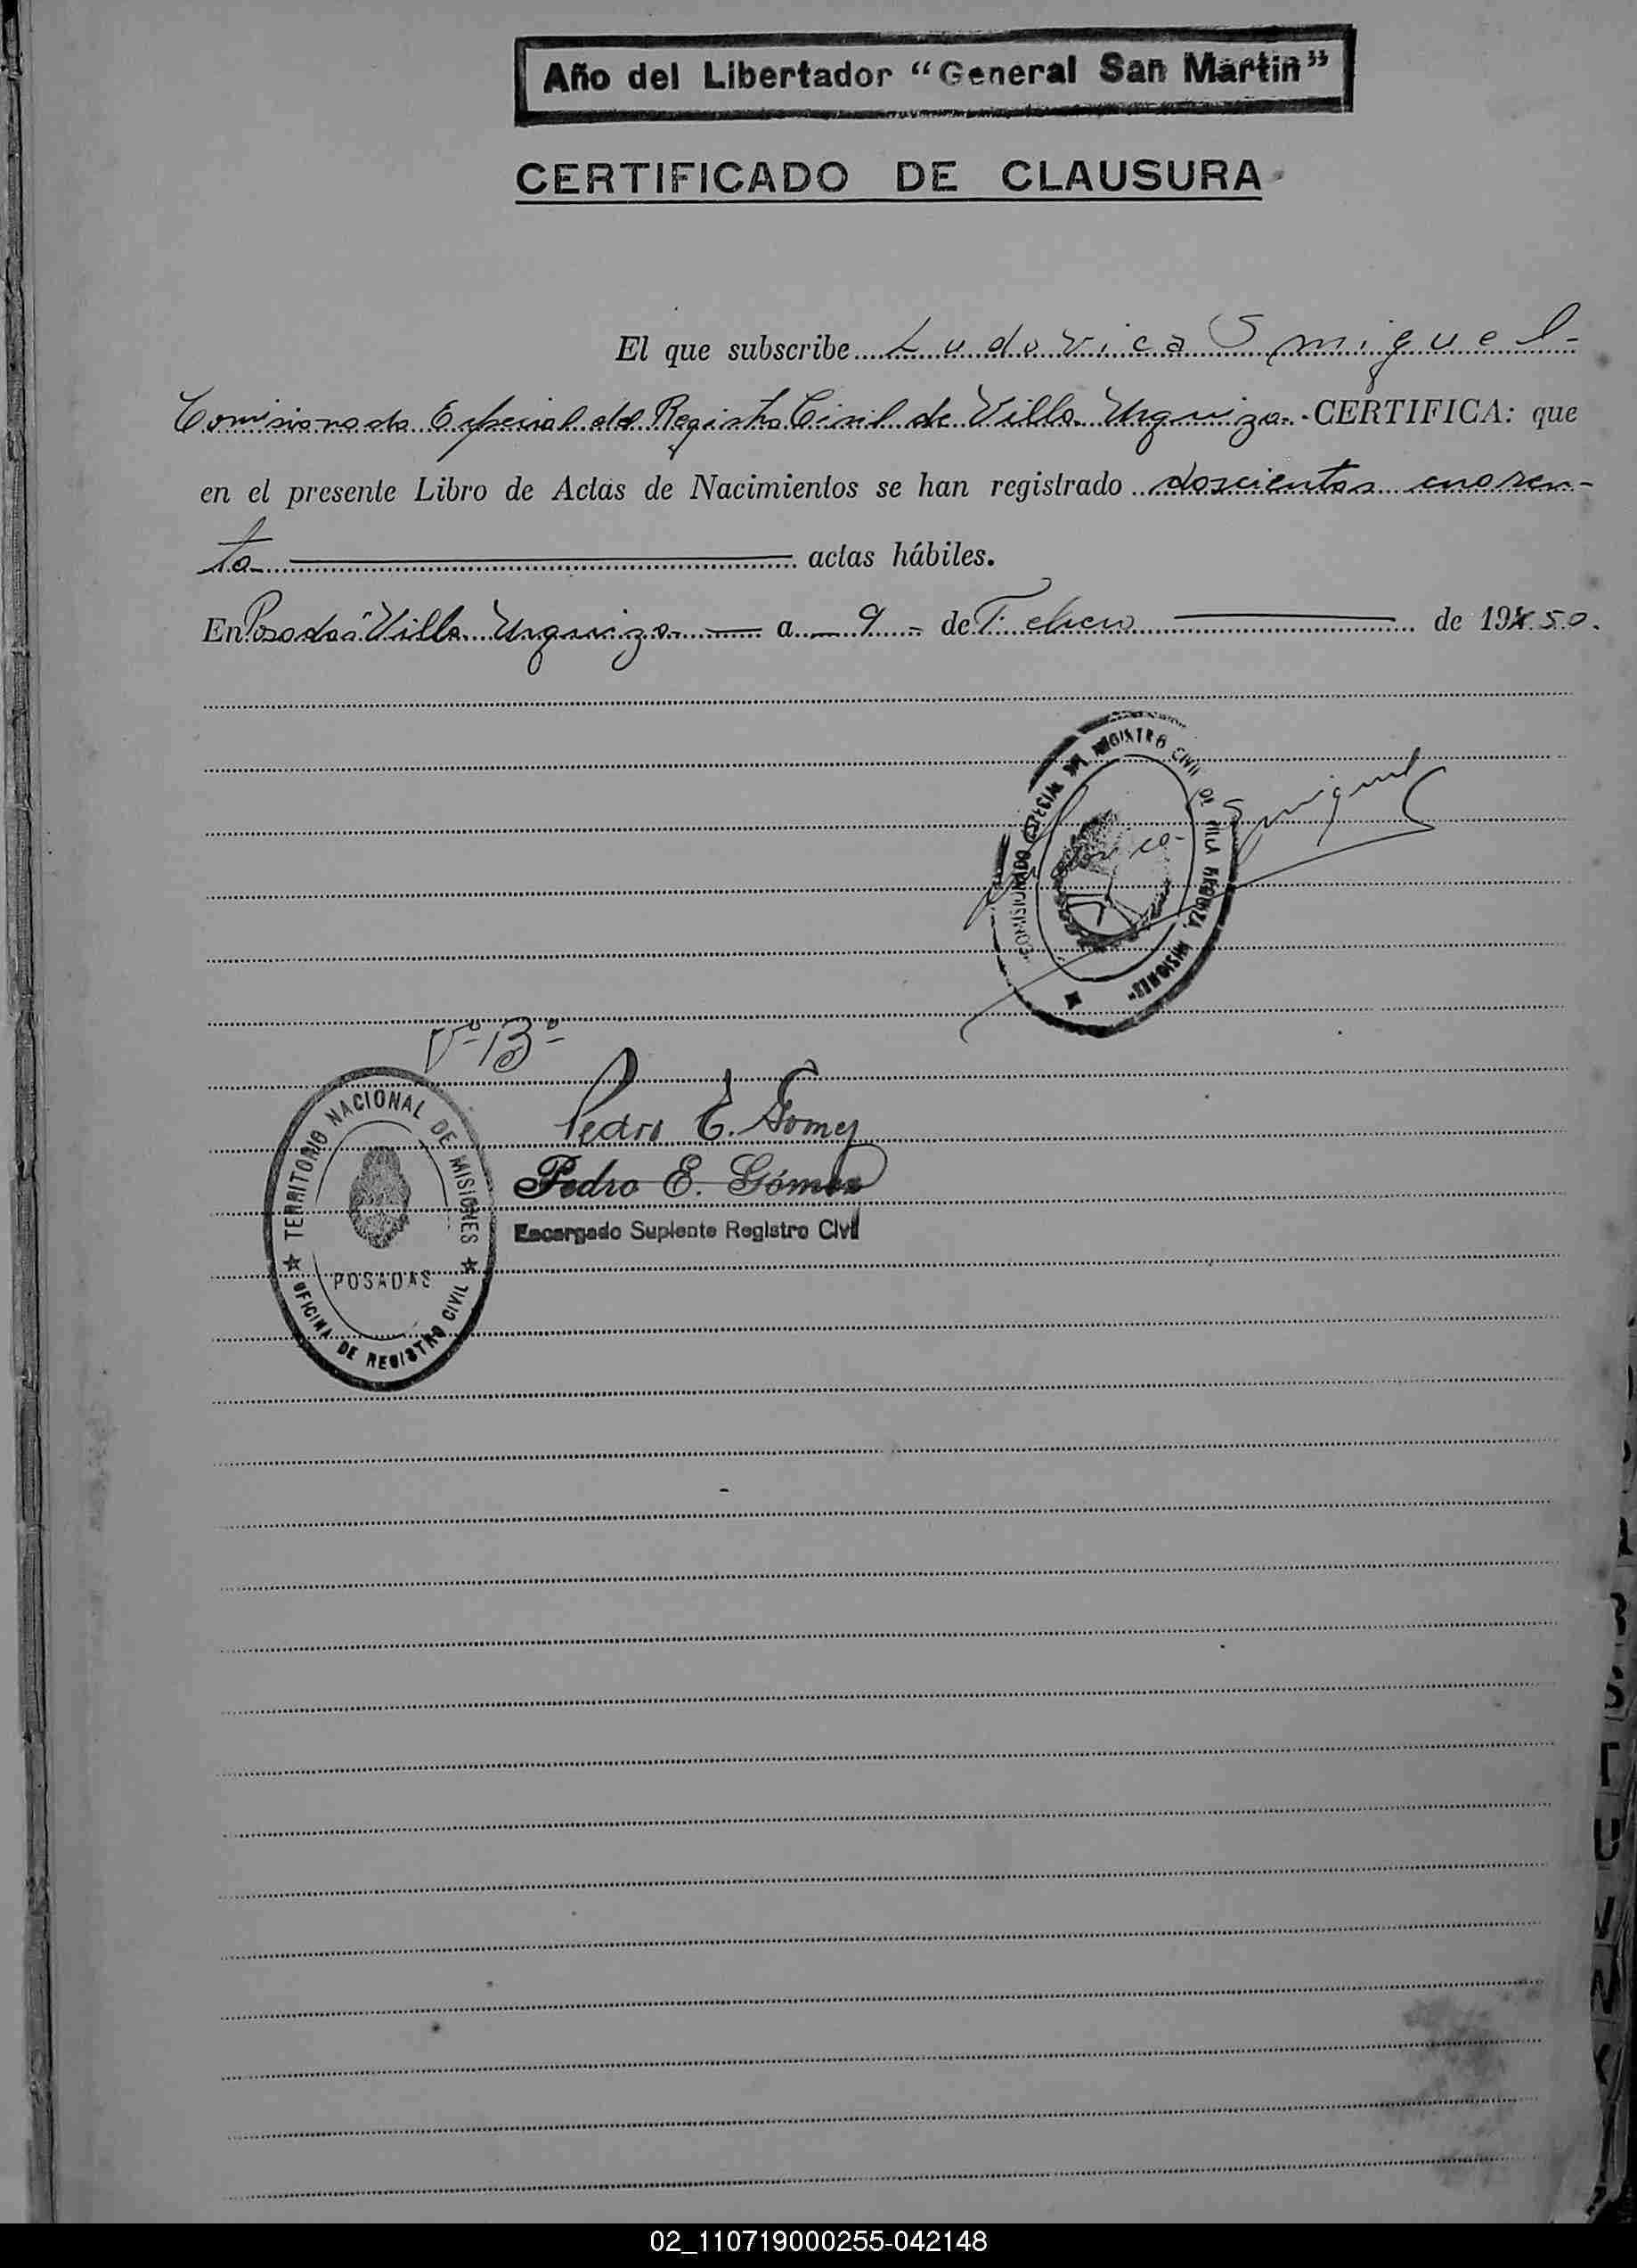 Año del Libertador “General San Martin”
CERTIFICADO DE CLAUSURA
El que subscribe Ludovica Smiguel-
Comisionada Especial del Registro Civil de Villa Urquiza.- CERTIFICA: que
en el presente Libro de Actas de Nacimientos se han registrado doscientas cuaren-
ta actas hábiles.
En Posadas "Villa Urquiza a 9 de Febrero de 19450.
COMISIONADO ESPECIAL DEL REGISTRO CIVIL DE VILLA URQUIZA, MISIONES"
Ludovica Smiguel
Vº Bº
Pedro E. Gomez
Pedro E. Gómez
Encargado Suplente Registro Civil
TERRITORIO NACIONAL DE MISIONES
POSADAS
OFICINA DE REGISTRO CIVIL
S
T
U
V
02_110719000255-042148